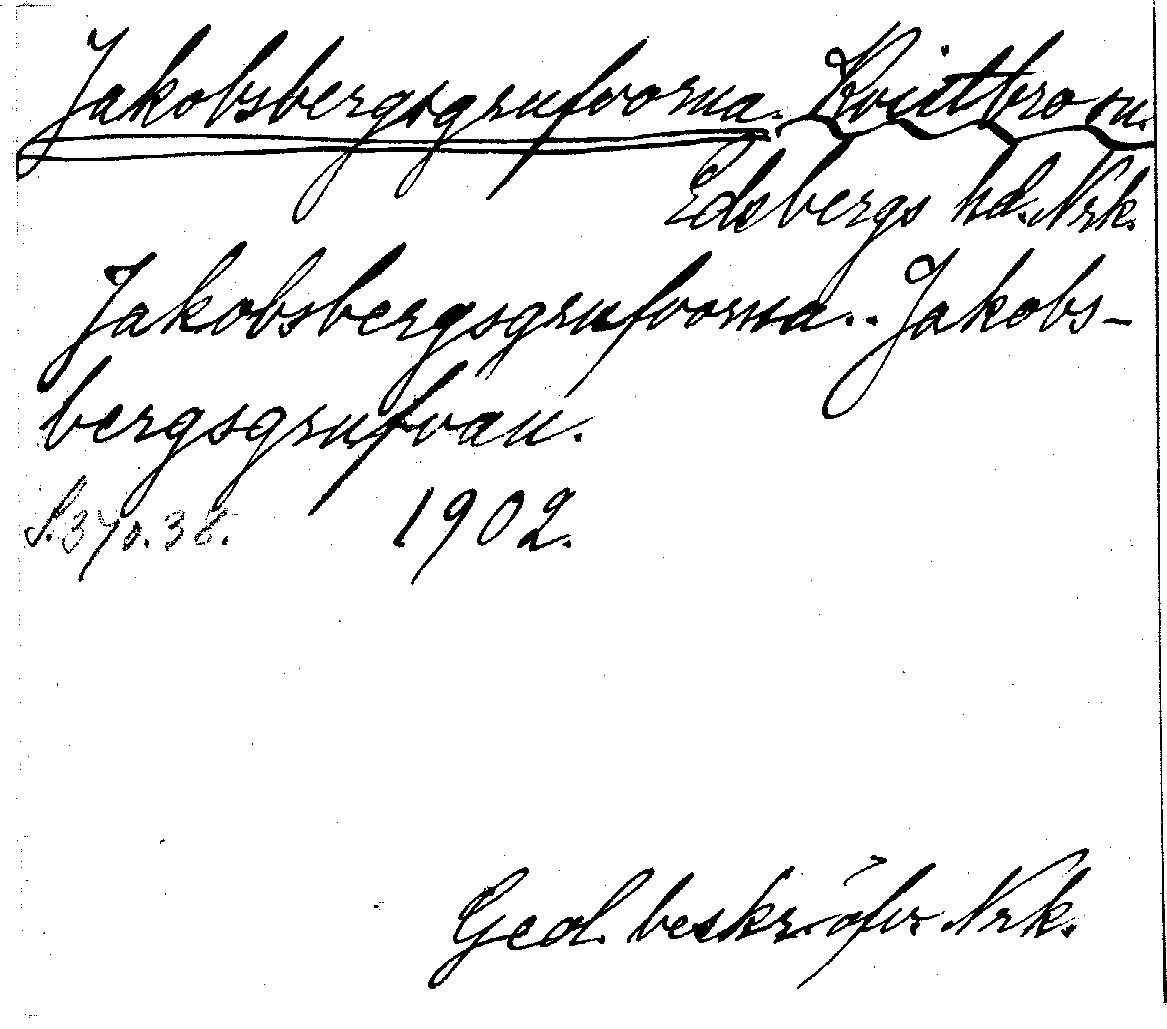 Jakobsbergsgrufvorna. Kvistbro sn.
Edsbergs hd. Nrk.
Jakobsbergsgrufvorna.. Jakobs-
bergsgrufvan.
S. 370. 38. 1902.
Geol. beskr. öfver Nrk.